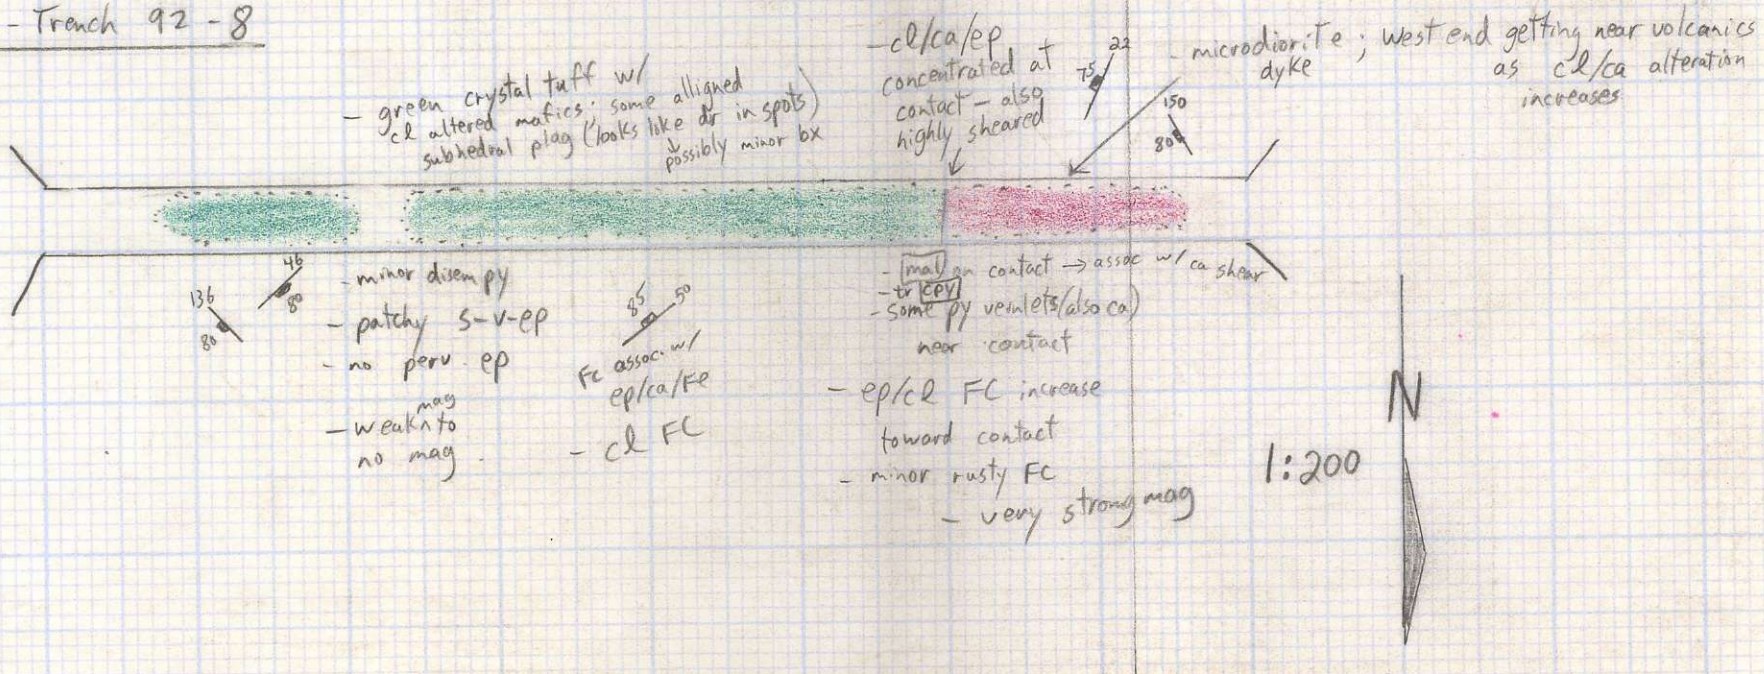 - Trench 92-8
- green crystal tuff w/
cl altered mafics; some alligned
subhedral plag (looks like dr in spots)
possibly minor bx
- cl/ca/ep
concentrated at
contact - also
highly sheared
22
75
- microdiorite ; West end getting near volcanics
dyke as cl/ca alteration
increases
150
80
136
80
46
80
- minor disem py
- patchy s-v-ep
- no perv. ep
mag
- weak ^ to
no mag.
85 50
FC assoc. w/
ep/ca/Fe
- cl FC
- mal on contact → assoc w/ ca shear
- tr cpy
- some py veinlets (also ca)
near contact
- ep/cl FC increase
toward contact
- minor rusty FC
- very strong mag
1:200
N